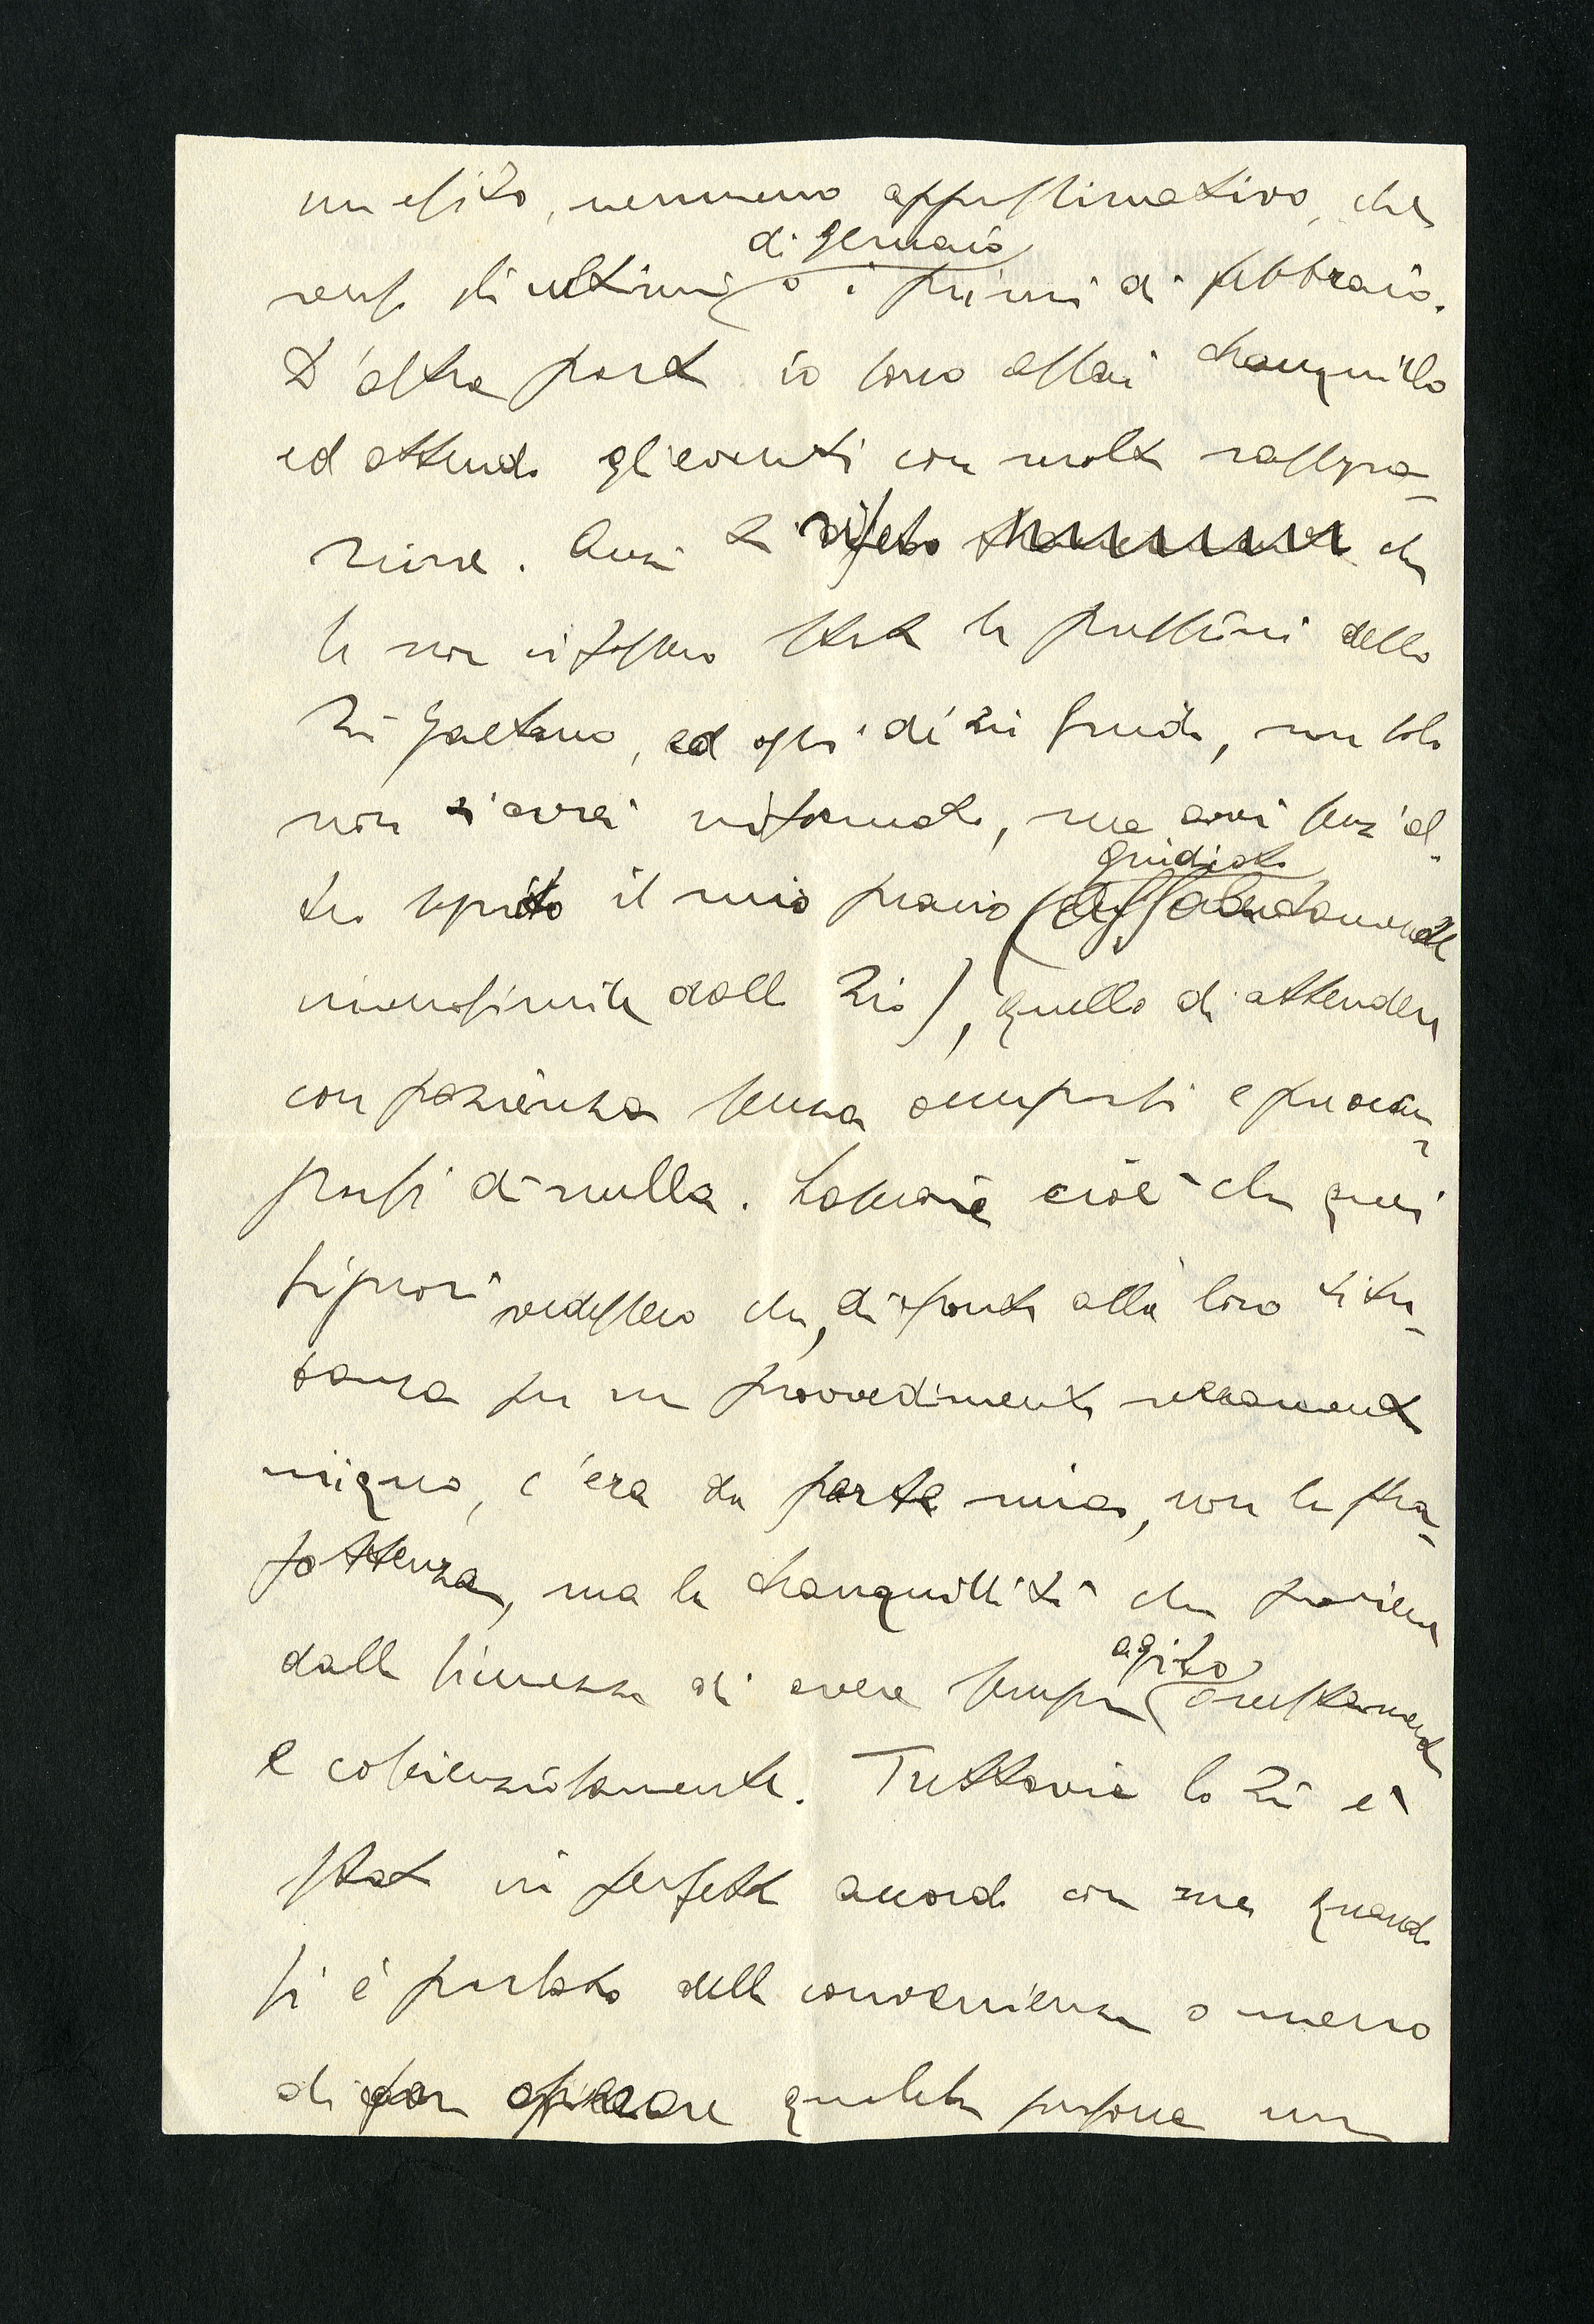 un esito, nemmeno approssimativo, che
verso gli ultimi di gennaio o i primi di febbraio.
D'altra parte io sono assai tranquillo
ed attendo gli eventi con molta rassegna-
zione. Anzi ti ripeto che
se non ci fossero state le pressioni dello
Zio Gaetano, ed oggi di Zio Guido, non solo
non t'avrei informato, ma avrei senz'al-
tro seguito il mio piano (giudicato assolutamente
inverosimile dallo Zio), quello di attendere
con pazienza senza occuparsi e preoccu-
parsi di nulla. Lasciare cioè che quei
signori vedessero che, di fronte alla loro titu-
banza per un provvedimento veramente
iniquo, c'era da parte mia, non la stra-
fottenza, ma la tranquillità che proviene
dalla sicurezza di avere sempre agito onestamente
e coscienziosamente. Tuttavia lo Zio è
stato in perfetto accordo con me quando
si è parlato della convenienza o meno
di far qualche persona